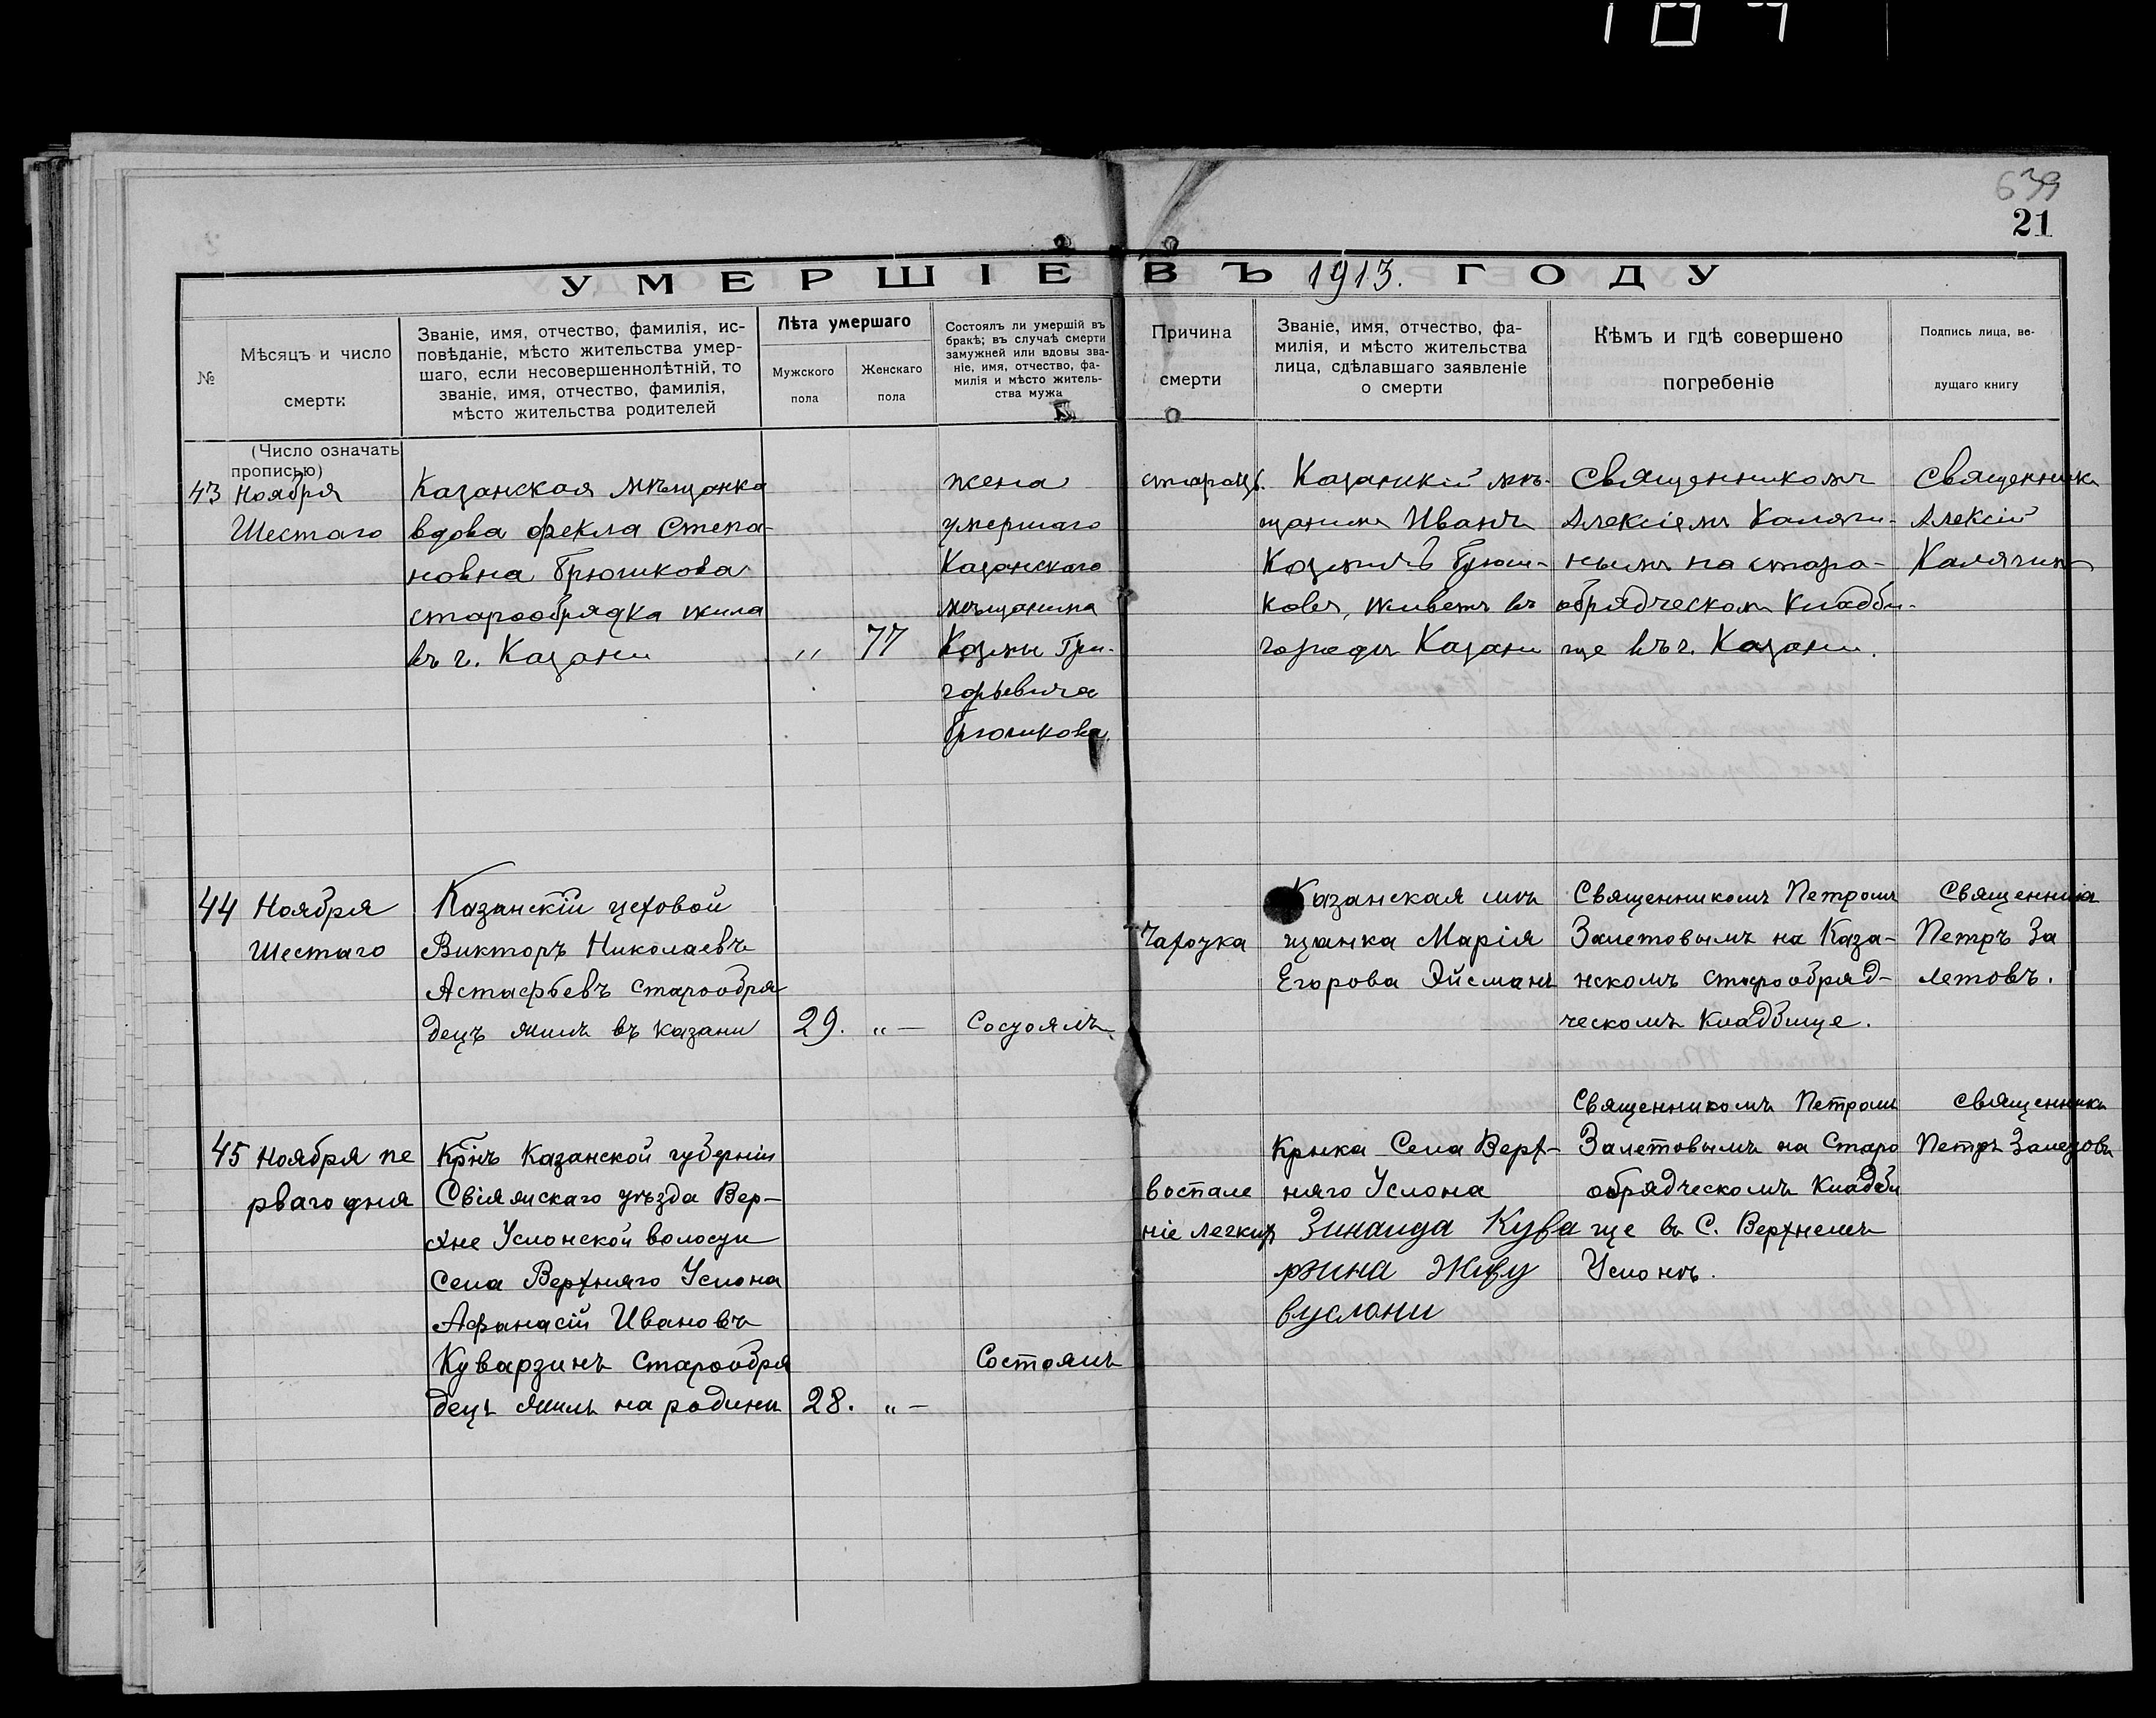 639
21
УМЕРШІЕ ВЪ 1913. ГОДУ
№
Мѣсяцъ и число
смерти
Званіе, имя, отчество, фамилія, ис-
повѣданіе, мѣсто жительства умер-
шаго, если несовершеннолѣтній, то
званіе, имя, отчество, фамилія,
мѣсто жительства родителей
Лѣта умершаго
Мужского
пола
Женскаго
пола
Состоялъ ли умершій въ
бракѣ; въ случаѣ смерти
замужней или вдовы зва-
ніе, имя, отчество, фа-
милія и мѣсто житель-
ства мужа
Причина
смерти
Званіе, имя, отчество, фа-
милія, и мѣсто жительства
лица, сдѣлавшаго заявленіе
о смерти
Кѣмъ и гдѣ совершено
погребеніе
Подпись лица, ве-
дущаго книгу
(Число означать
прописью)
43
Ноября
Шестаго
Казанская мѣщанка
вдова Фекла Степа-
новна Брюшкова
старообрядка жила
въ г. Казани
"
77
жена
умершаго
Казанскаго
мѣщанина
Козмы Гри-
горьевича
Брюшкова.
Казанскій мѣ-
щанинъ Иванъ
Козмичъ Брюш-
ковъ, живетъ въ
городѣ Казани
Священникомъ
Алексіемъ Каляги-
нымъ на старо-
обрядческомъ Кладби-
ще въ г. Казани.
Священникъ
Алексій
Калягинъ
44
Ноября
Шестаго
Казанскій цеховой
Викторъ Николаевъ
Астафьевъ старообря
децъ жилъ въ Казани
29.
" —
Состоялъ
Чахотка
Казанская мѣ
щанка Марія
Егорова Эйсманъ
Священникомъ Петромъ
Залетовымъ на Каза-
нскомъ старообряд-
ческомъ Кладбище.
Священникъ
Петръ За
летовъ.
45
Ноября пе
рваго дня
Крнъ Казанской губерніи
Свіяжскаго уѣзда Вер-
хне Услонской волости
Села Верхняго Услона
Афанасій Ивановъ
Куварзинъ старообря
децъ жилъ на родинѣ
28.
" —
Состоялъ
воспале
ніе легкихъ
Крнка Села Верх-
няго Услона
Зинаида Кува
рзина Живу
вуслони
Священникомъ Петромъ
Залетовымъ на Старо
обрядческомъ Кладби
ще въ С. Верхнемъ
Услонѣ.
Священникъ
Петръ Залетовъ